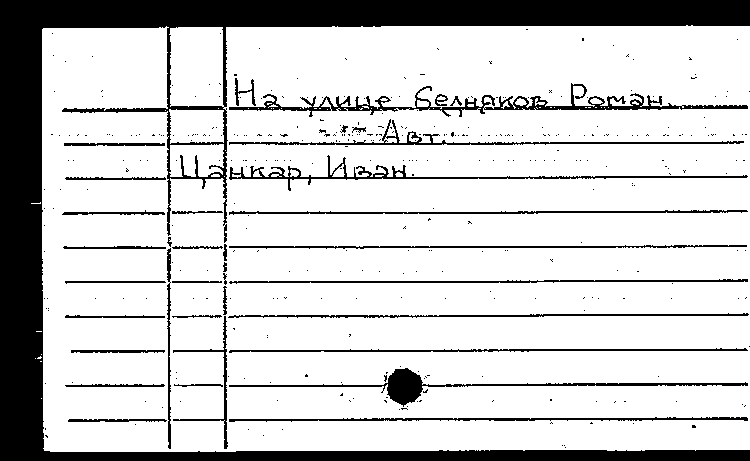 На улице бедняков Роман.
Авт.:
Цанкар, Иван.